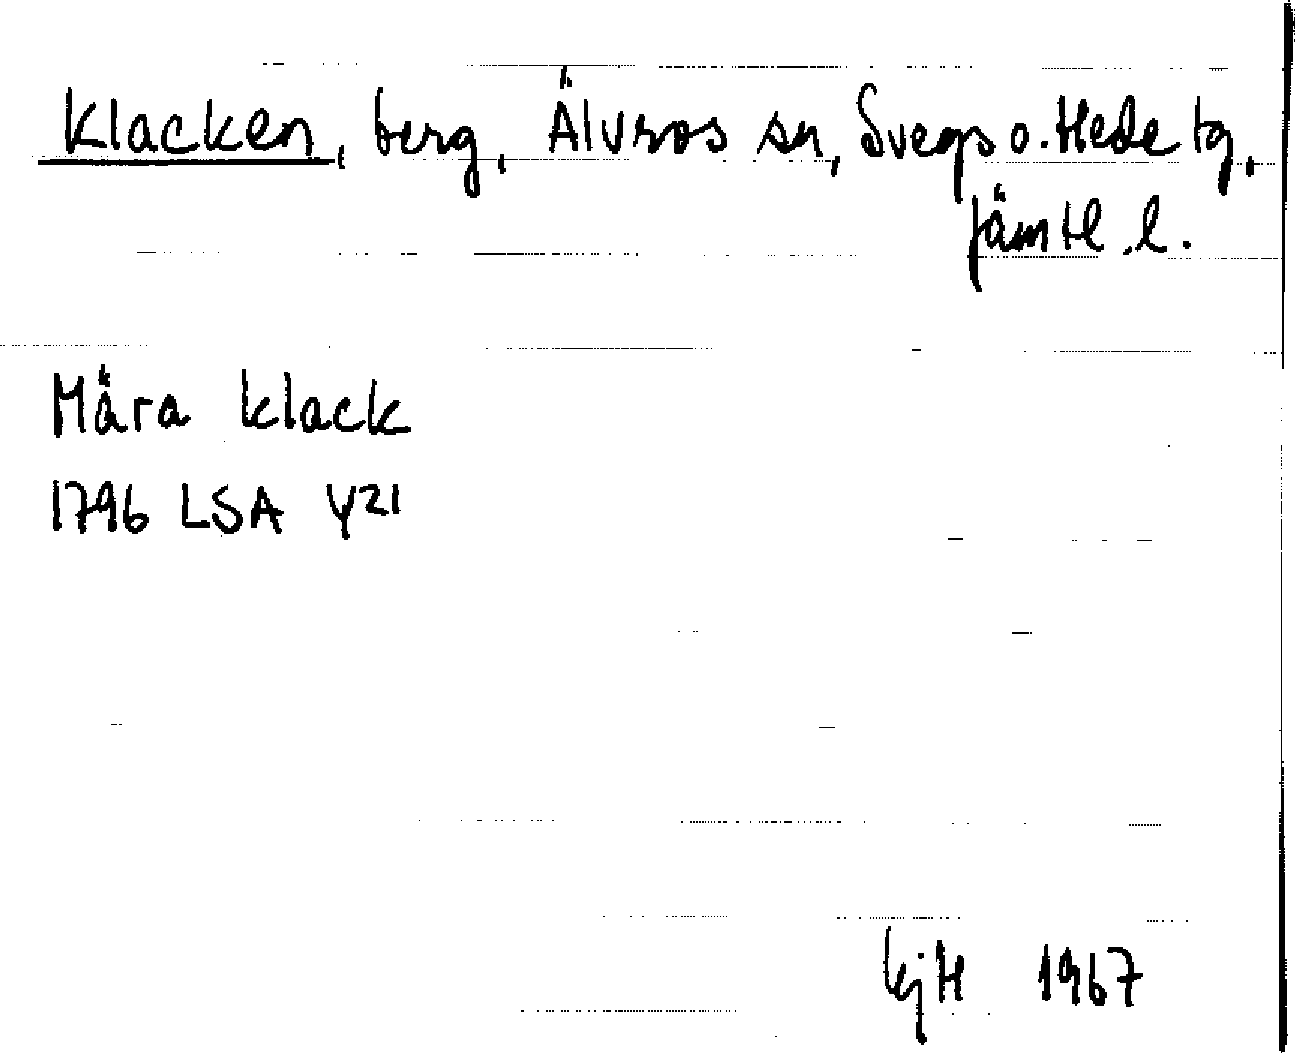 Klacken, berg, Älvros sn, Svegs o. Hede tg,
Jämtl. l.
Måra klack
1796 LSA Y21
KjH 1967